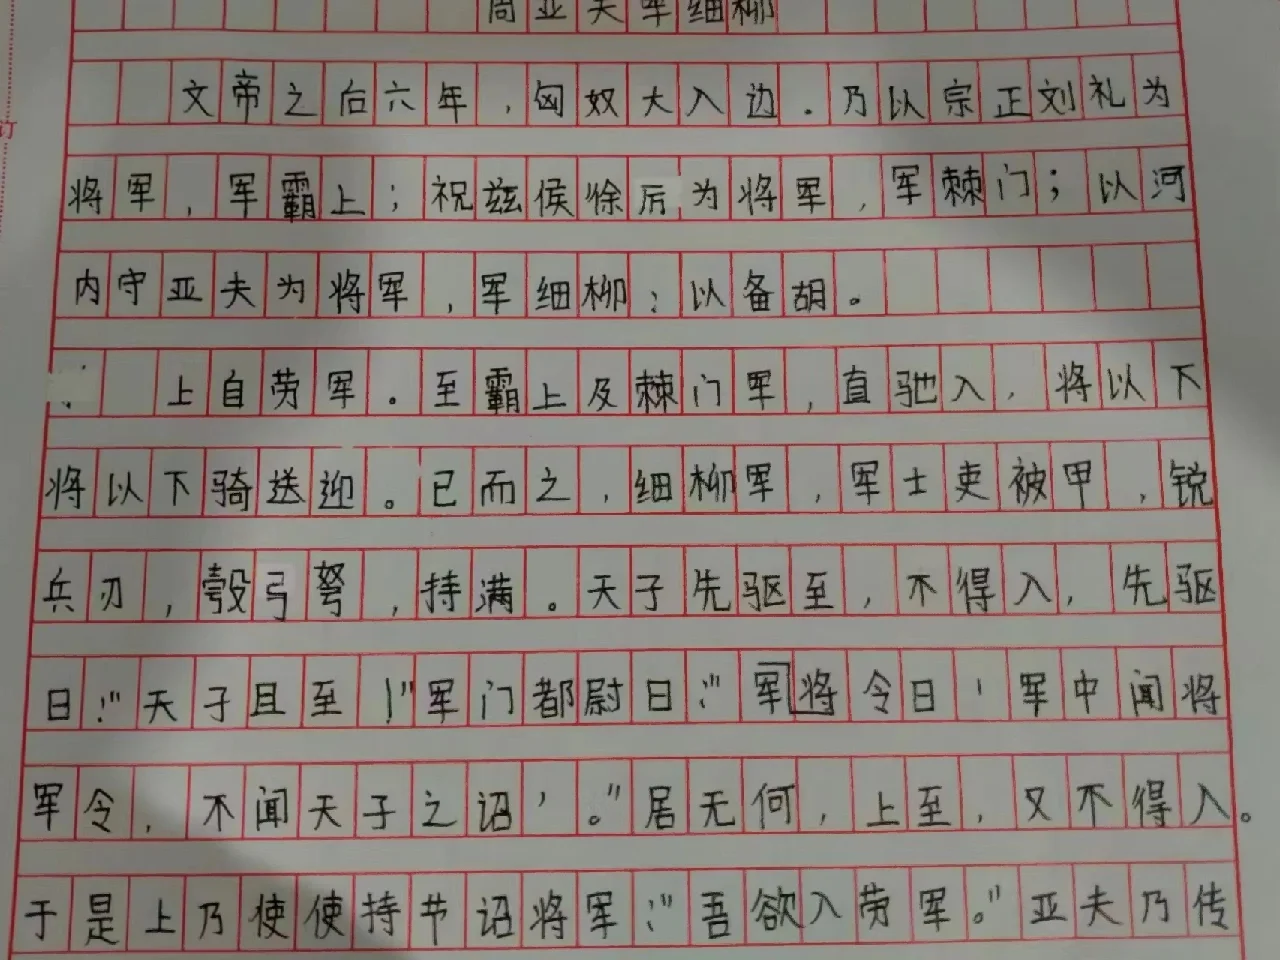 周亚夫军细柳
文帝之后六年，匈奴大入边．乃以宗正刘礼为
将军，军霸上；祝兹侯徐厉为将军，军棘门；以河
内守亚夫为将军，军细柳；以备胡。
上自劳军。至霸上及棘门军，直驰入，将以下
将以下骑送迎。已而之，细柳军，军士吏被甲，锐
兵刃，彀弓弩，持满。天子先驱至，不得入，先驱
日："天子且至！"军门都尉日："军将令日'军中闻将
军令，不闻天子之诏'。"居无何，上至，又不得入。
于是上乃使使持节诏将军："吾欲入劳军。"亚夫乃传
订